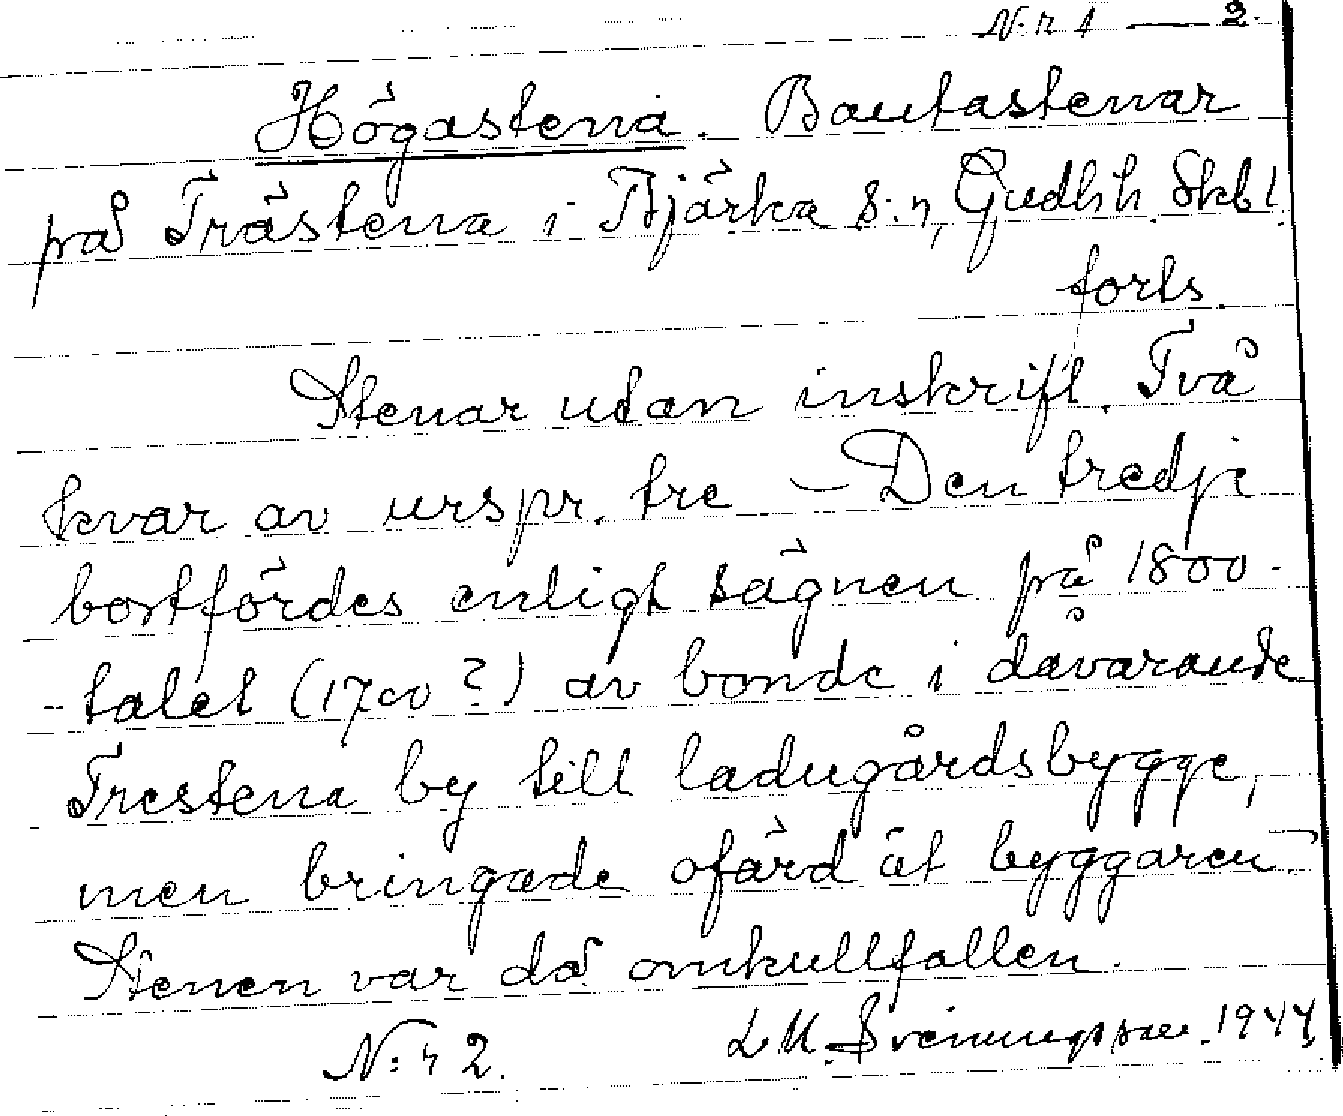 N:r 1 — 2.
Högastena. Bautastenar
på Trästena i Bjärka s:n, Gudh. h. Skbl.
forts.
Stenar utan inskrift. Två
kvar av urspr. tre – Den tredje
bortfördes enligt sägnen på 1800-
talet (1700?) av bonde i dåvarande
Trestena by till ladugårdsbygge,
men bringade ofärd åt byggaren.
Stenen var då omkullfallen.
N:r 2. L. M. Svenungsson. 1944